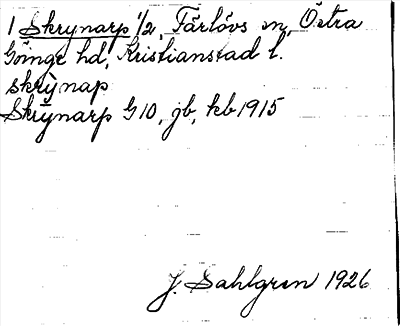 1 Skrynarp 1/2, Färlövs sn, Östra
Göinge hd, Kristianstad l.
skrỳnap
Skrynarp G 10, jb, kb 1915
J. Sahlgren 1926